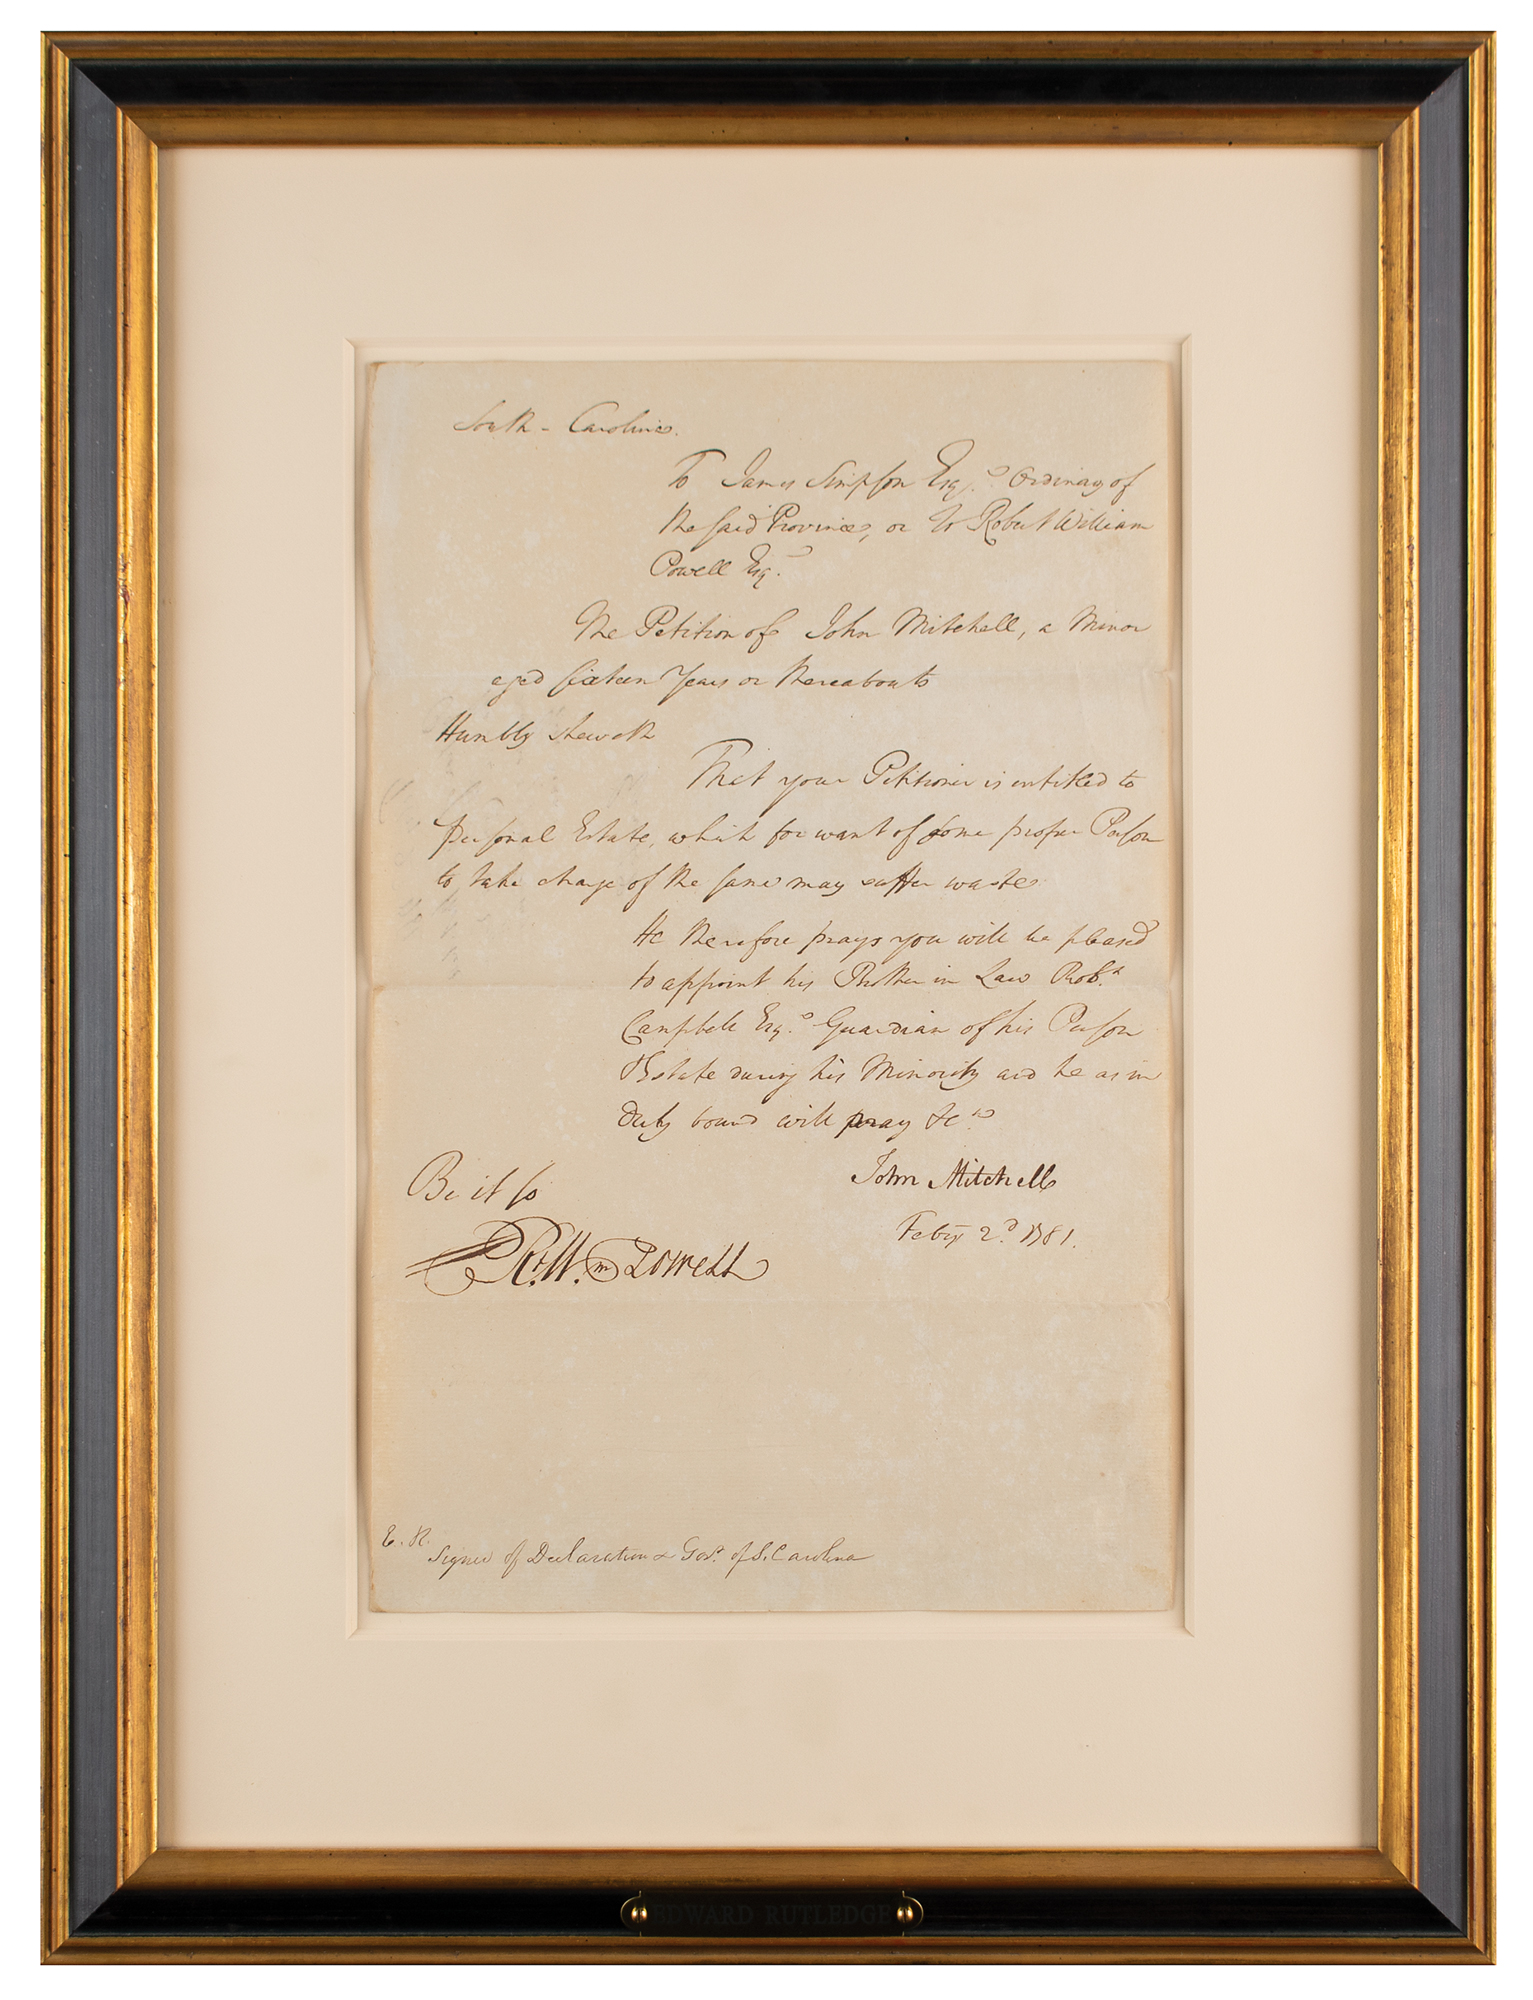 South - Carolina.
To James Simpson Esq.r Ordinary of
the said Province, or to Robert William
Powell Esq.r
The Petition of John Mitchell, a Minor
aged sixteen Years or thereabouts
Humbly Sheweth
That your Petitioner is entitled to
personal Estate, which for want of some proper Person
to take charge of the same may suffer waste
He therefore prays you will be pleased
to appoint his Brother in Law Rob.t
Campbell Esq.r Guardian of his Person
& Estate during his Minority and he as in
Duty bound will pray &c.
John Mitchell
Be it so
Feb.ry 2.d 1781.
R.t W.m Powell
E. R.
Signer of Declaration & Gov.r of S. Carolina
EDWARD RUTLEDGE